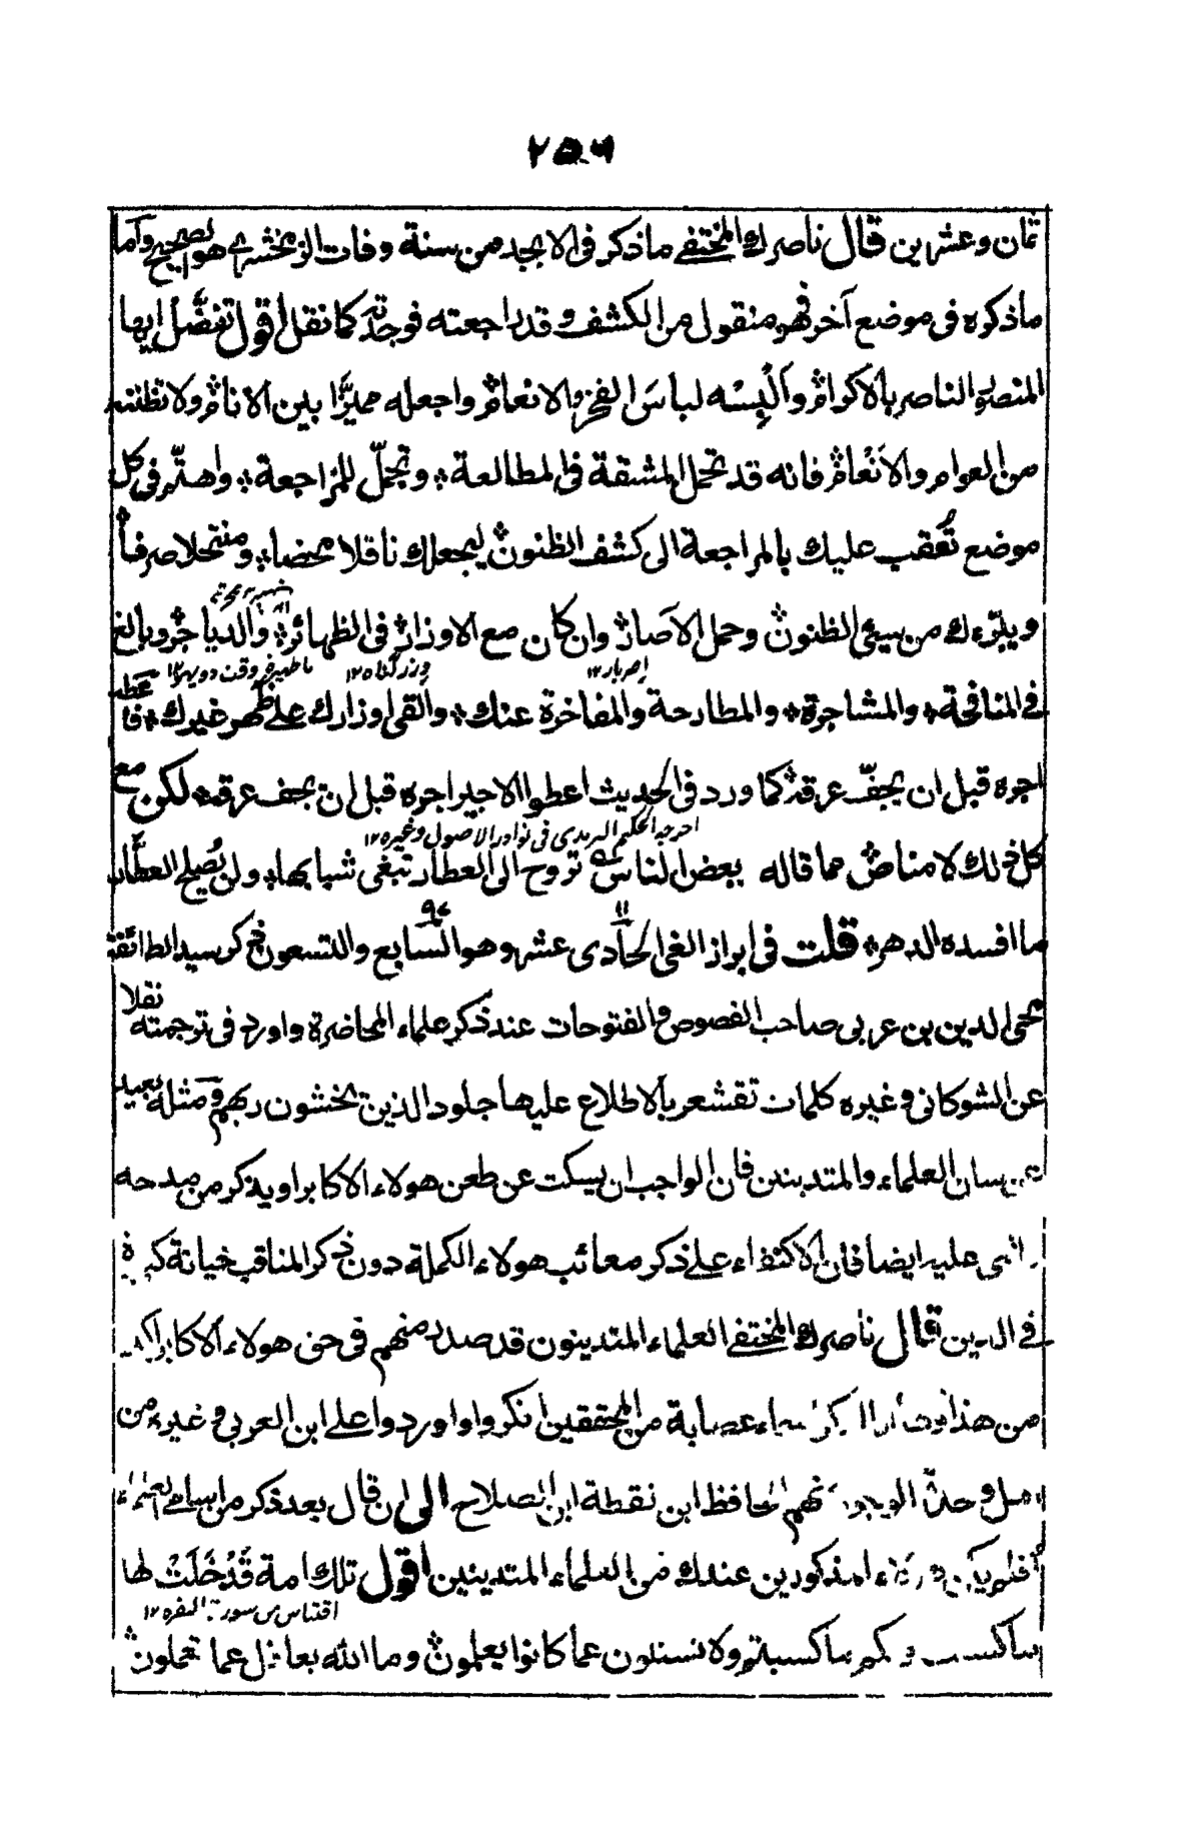 ٢٥٦
ثمان وعشرين قال ناصرك المختفي ما ذكر في الابجد من سنة وفات الزمخشري هو الصحيح واما
ما ذكره في موضع آخر فهو منقول من الكشف وقد راجعته فوجدته كما نقل اقول تفضّل ايها
المنصور الناصر بالاكرام والبسه لباسَ الفخر والانعام واجعله مميزًا بين الانام ولا تظننه
من العوام والانعام فانه قد تحمل المشقة في المطالعة وتجمّل للمراجعة واهتم في كل
موضع تُعقب عليك بالمراجعة الى كشف الظنون ليجعلك ناقلا محضا ومنتحلا صرفا
ويبرّءك من سيئ الظنون وحمل الآصار وان كان مع الاوزار في الظهائر والدياجر وبالغ
اصر بار ١٢ وزر گناه ١٢
في المنافحة والمشاجرة والمطارحة والمفاخرة عنك والقى اوزارك على ظهر غيرك فاعطه
اجره قبل ان يجفّ عرقه كما ورد في الحديث اعطوا الاجير اجره قبل ان يجف عرقه لكن مع
اخرجه الحكيم الترمذي في نوادر الاصول وغيره ١٢
كل ذلك لا مناص مما قاله بعض الناس تروح الى العطار تبغي شبابها ولن يُصلح العطّار
ما افسده الدهر قلت في ابراز الغي الحادي عشر وهو السابع والتسعون ذكر سيد الطائفة
١١ ٩٧
محي الدين بن عربي صاحب الفصوص والفتوحات عند ذكر علماء المحاضرة واورد في ترجمته نقلا
عن الشوكاني وغيره كلمات تقشعر بالاطلاع عليها جلود الذين يخشون ربهم ومثله بعيد
عن شان العلماء والمتدينين فان الواجب ان يسكت عن طعن هولاء الاكابر او يذكر من مدحه
اثنى عليه ايضا فان الاكتفاء على ذكر معائب هولاء الكملة دون ذكر المناقب خيانة كبيرة
في الدين قال ناصرك المختفي العلماء المتدينون قد صدر منهم في حق هولاء الاكابر اكبر
من هذا عصابة من المحققين انكروا واوردوا على ابن العربي وغيره من
اهل وحدة الوجود منهم الحافظ ابن نقطة ابن الصلاح الى ان قال بعد ذكر من اسامي العلماء
افلم يكن هؤلاء المذكورين عندك من العلماء المتدينين اقول تلك امة قَدْ خَلَتْ لها
اقتباس من سورة البقرة ١٢
ما كسبت ولكم ما كسبتم ولا تسئلون عما كانوا يعملون وما الله بغافل عما تعملون